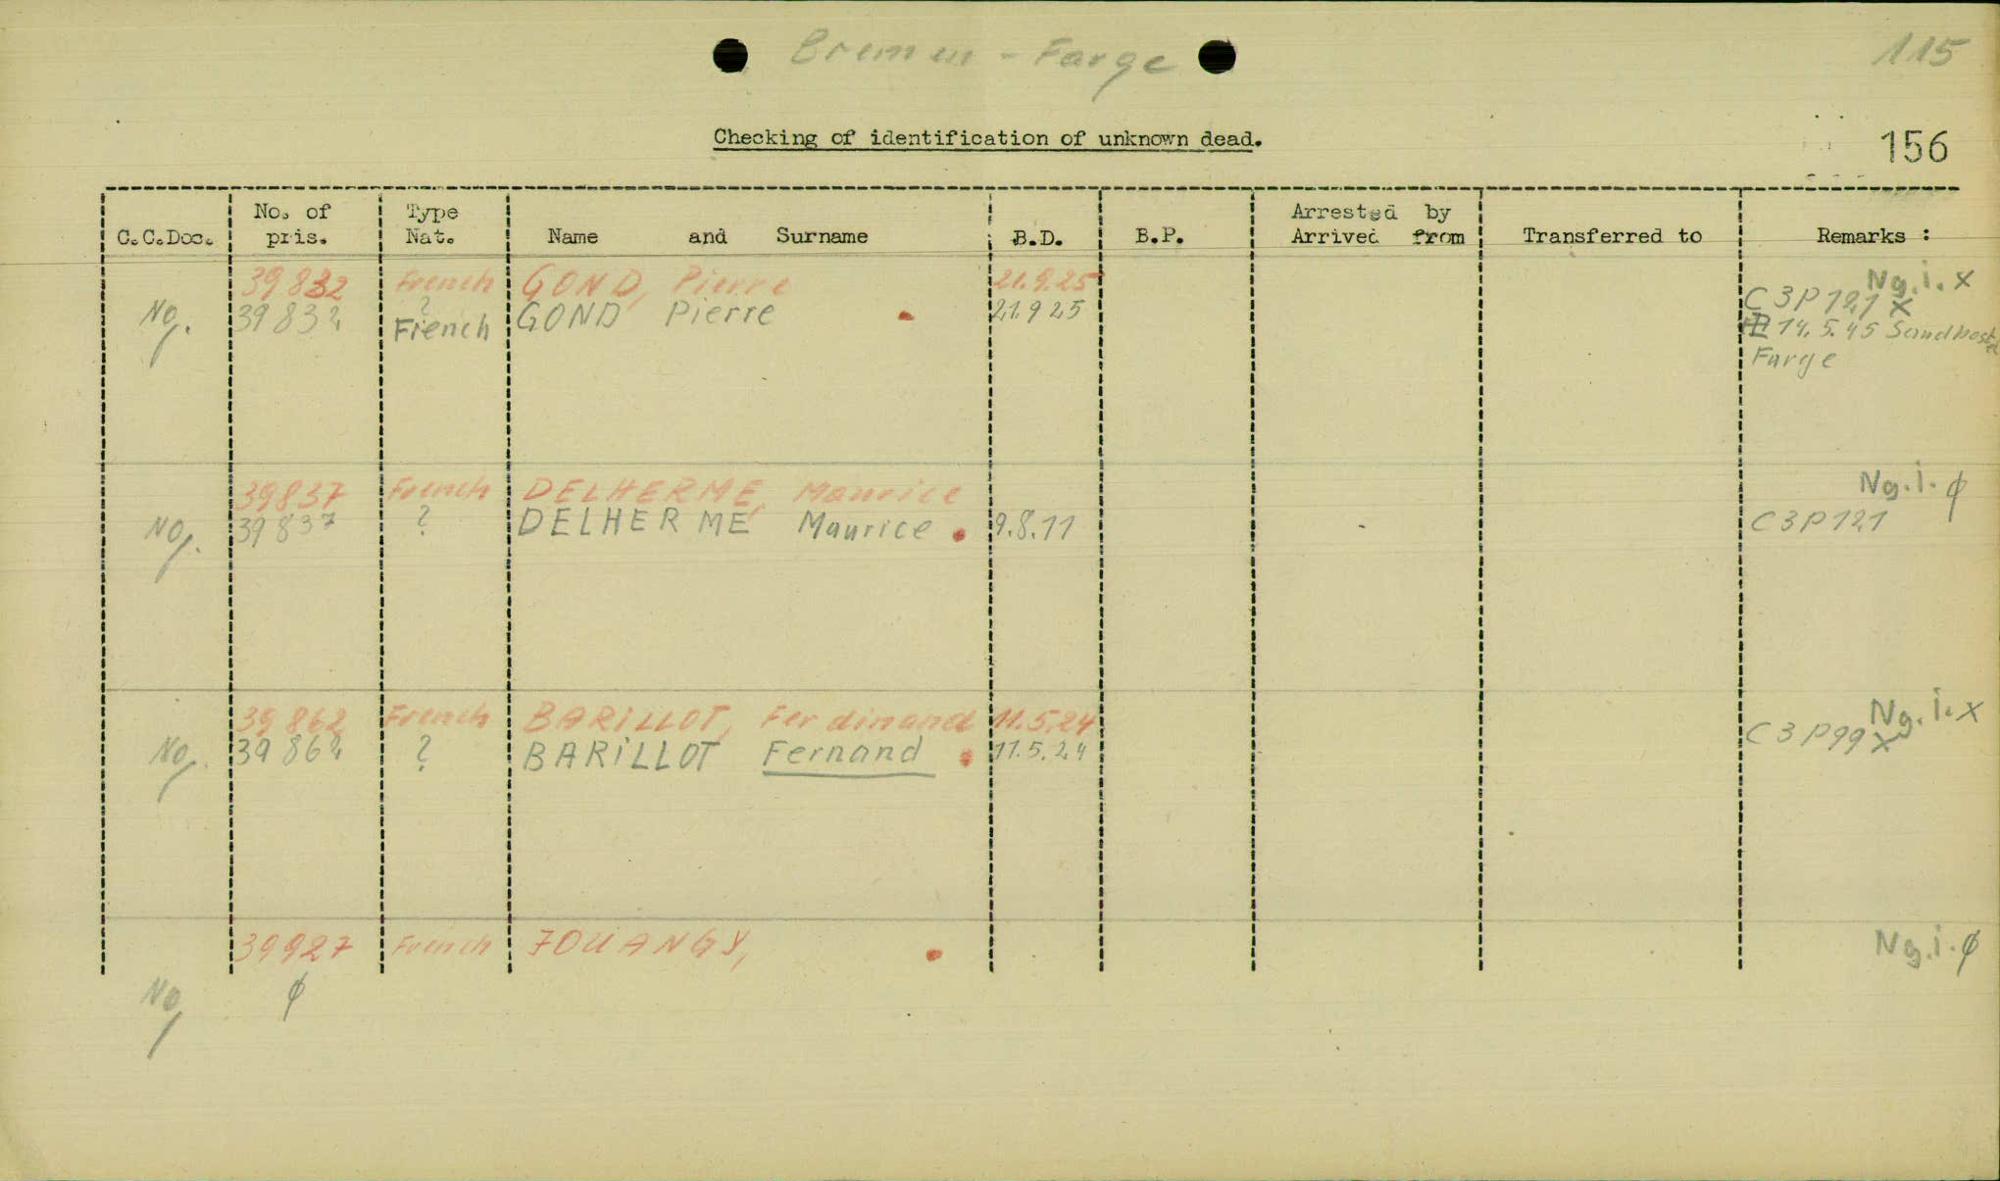 Bremen - Farge
115
Checking of identification of unknown dead.
156
C.C.Doc. No. of pris. Type Nat. Name and Surname B.D. B.P. Arrested by Arrived from Transferred to Remarks :
39832 French GOND, Pierre 21.9.25 Ng.i. x
No. 39832 ? French GOND Pierre 21.9 25 C3P121 x
14.5.45 Sandbostel
Farge
39837 French DELHERME, Maurice Ng.i. ϕ
No. 39837 ? DELHERME Maurice 9.8.11 C3P121
39862 French BARILLOT, Ferdinand 11.5.24 Ng.i.x
No. 39862 ? BARILLOT Fernand 11.5.24 C3P99 x
39927 French JOUANGY, Ng.i. ϕ
No ϕ